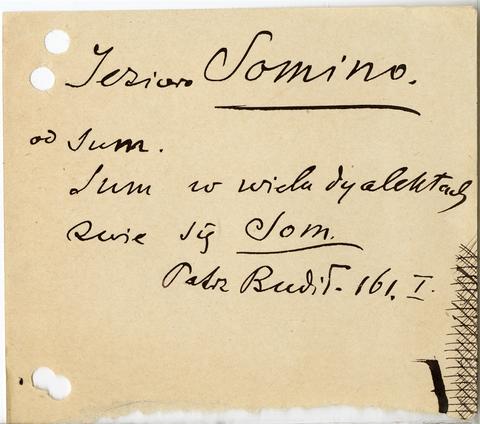 Jezioro Somino.
od Sum.
Sum w wielu dyalektach
zwie się Som.
Patrz Budił. 161. I.